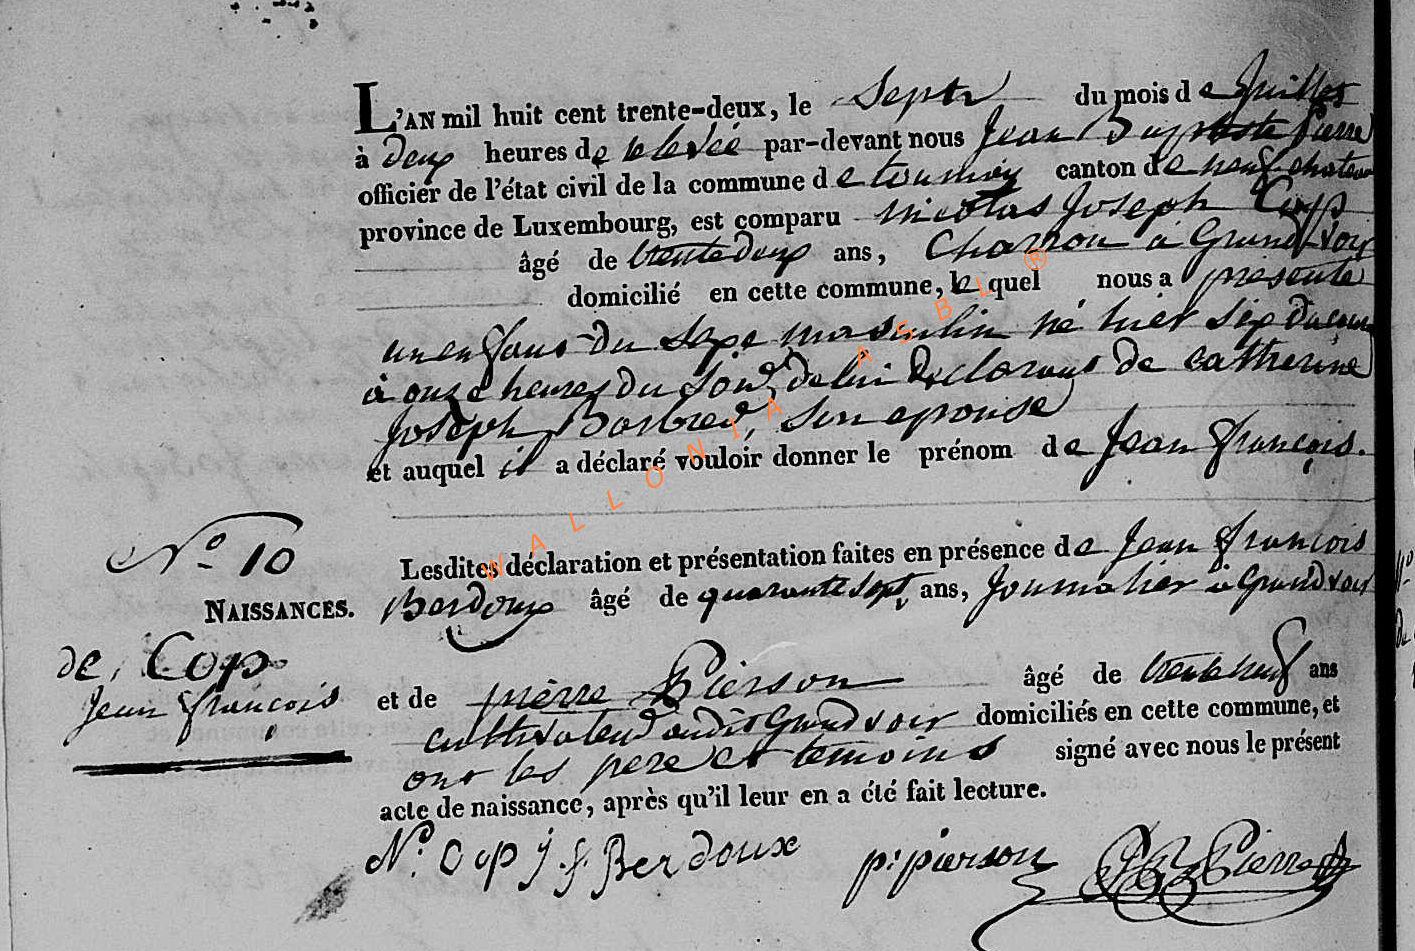 L'AN mil huit cent trente-deux, le Sept du mois de Juillet
à deux heures de relevée par-devant nous Jean Baptiste Pierre
officier de l'état civil de la commune de tournay canton de neufchateau
province de Luxembourg, est comparu nicolas Joseph Cop
âgé de trente deux ans, Charron à Grandvoir
domicilié en cette commune, le quel nous a présenté
un enfant du sexe masculin né hier six du cour
à onze heures du soir, de lui déclarant de catherine
Joseph Barbed, son epouse
et auquel il a déclaré vouloir donner le prénom de Jean françois.
Lesdites déclaration et présentation faites en présence de Jean françois
N.o 10
NAISSANCES.
de, Cop
Jean françois
Berdoux âgé de quarante sept, ans, Journalier à Grandvoir
et de pierre Pierson âgé de trente neuf ans
cultivateur audit Grandvoir domiciliés en cette commune, et
ont les pere et temoins signé avec nous le présent
acte de naissance, après qu'il leur en a été fait lecture.
N. Cop j f Berdoux p: pierson JB Pierre
WALLONIA ASBL ®